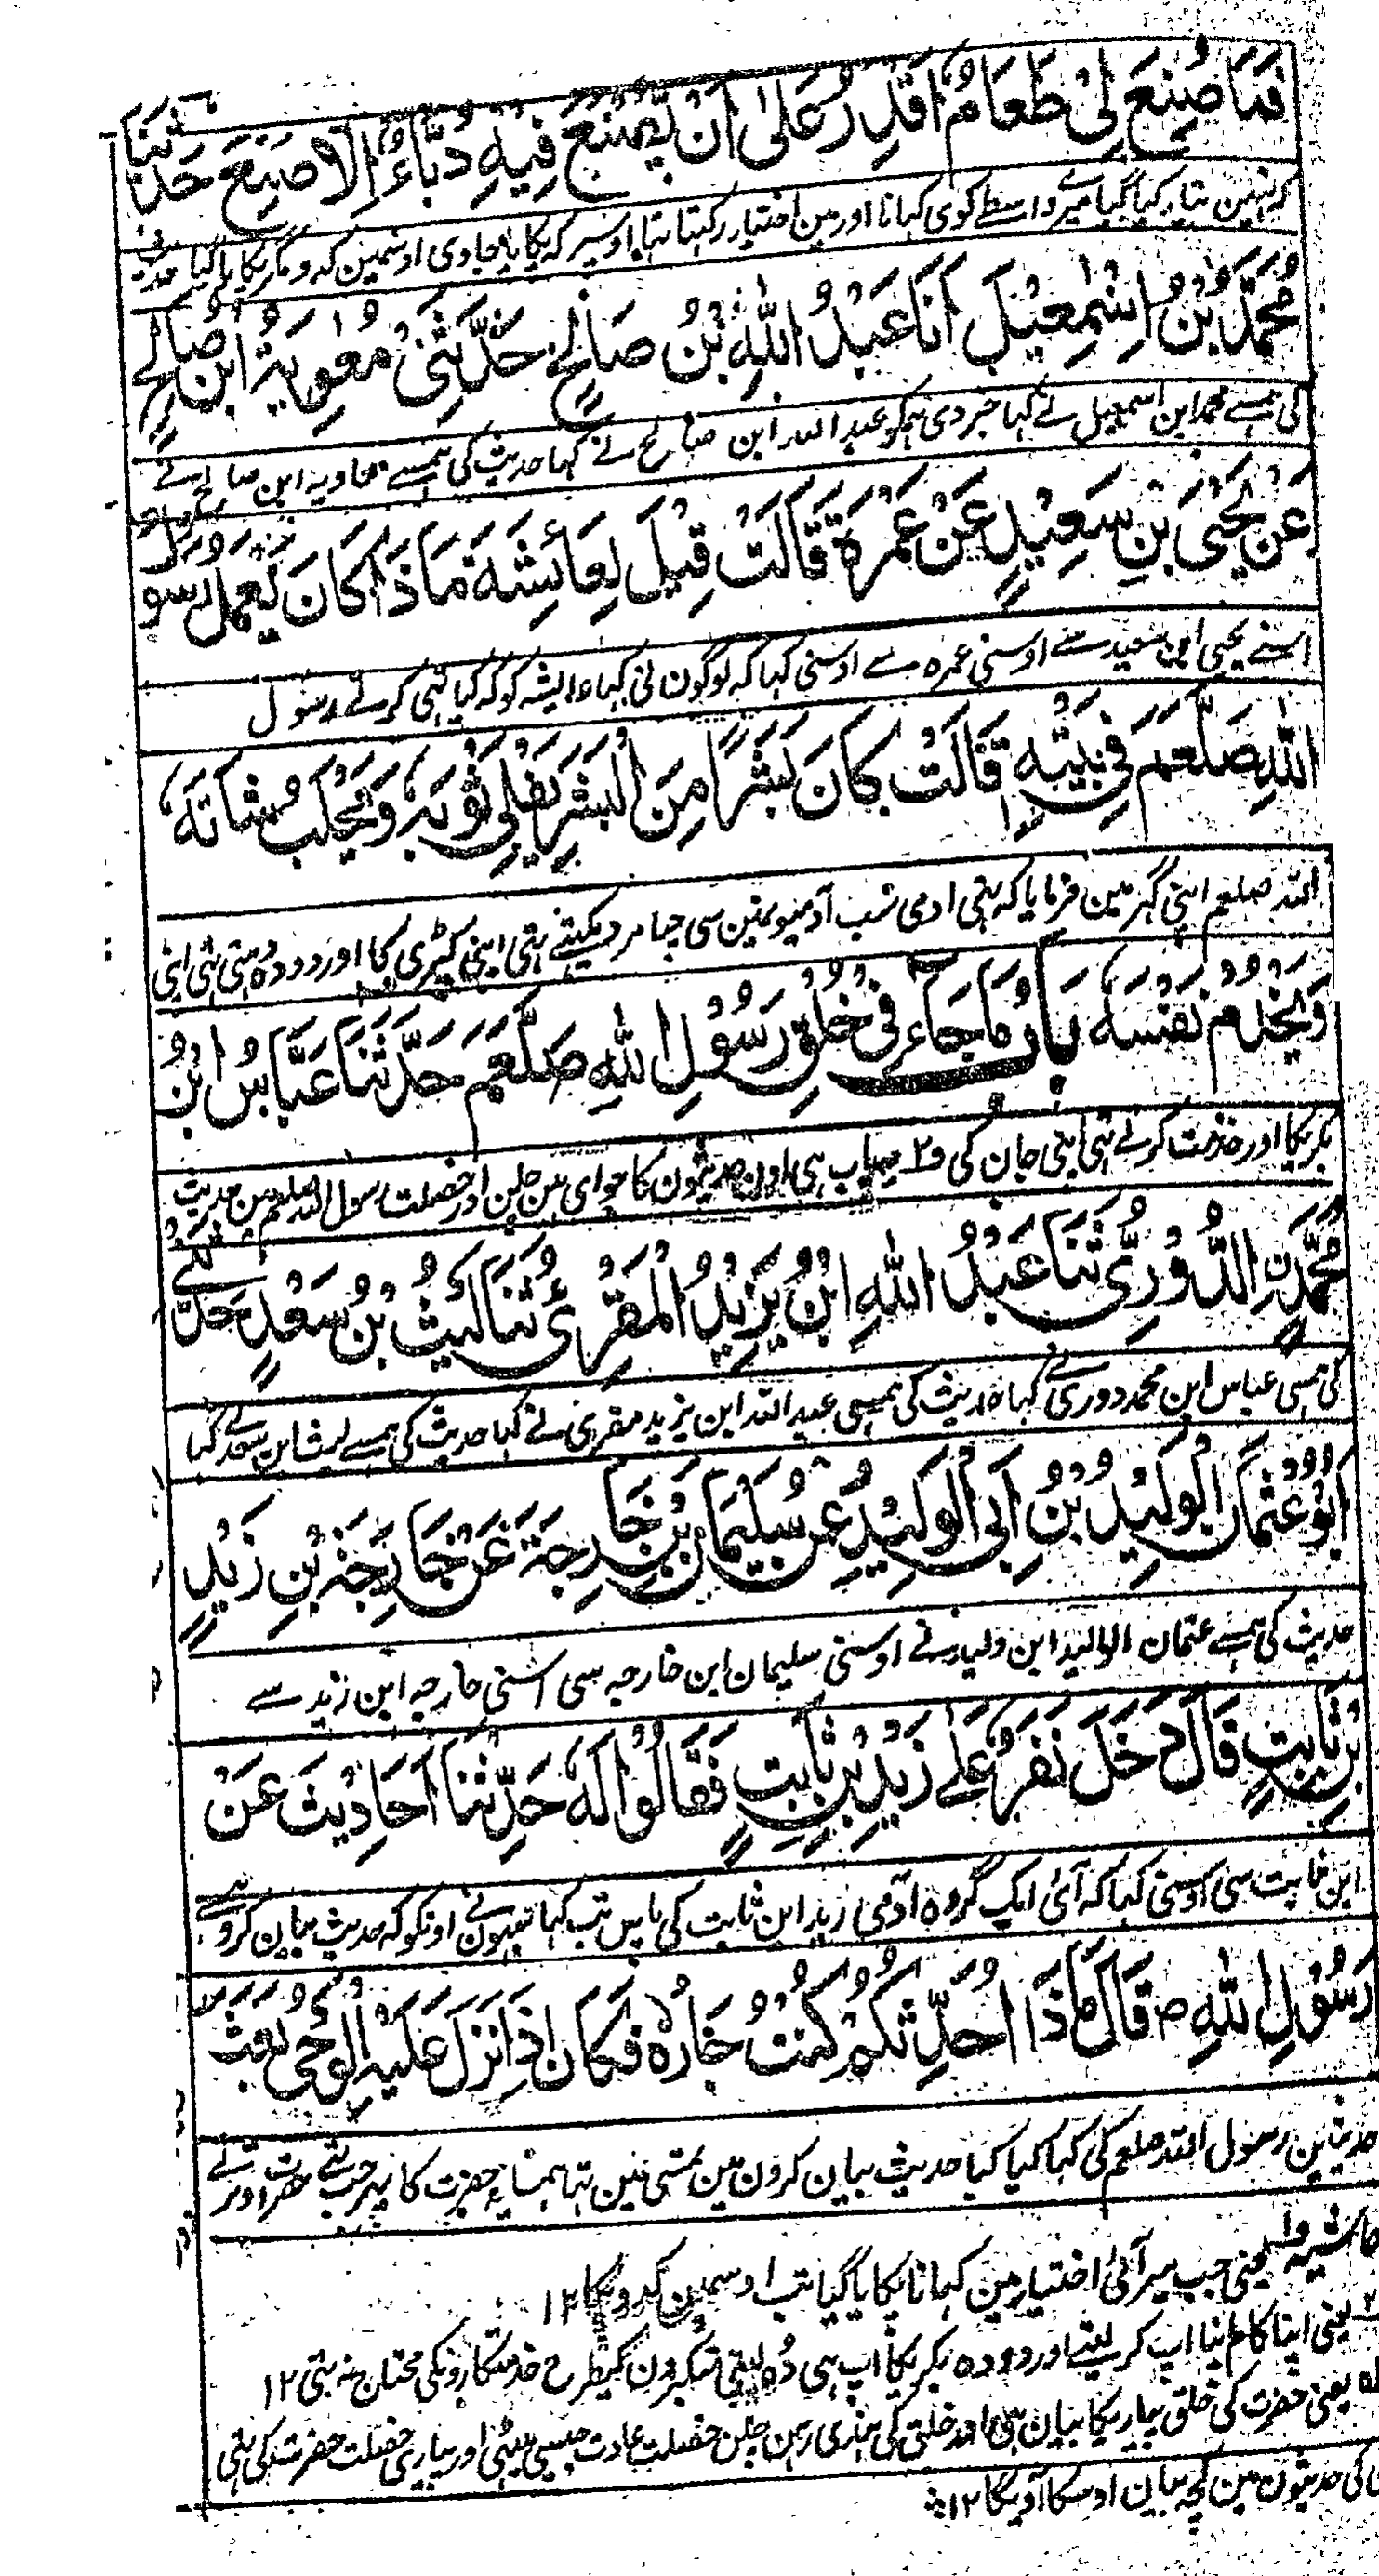 فَمَا صُنِعَ لِىْ طَعَامٌ اَقْدِرُ عَلٰى اَنْ يُّصْنَعَ فِيْهِ دُبَّاءُ اِلَّا صُنِعَ حَدَّثَنَا
کہ نہین تیار کیا گیا میرے واسطے کوی کہانا اور مین اختیار رکہتا تہا اوسپر کہ پکایا جاوی اوسمین کدو مگر پکایا گیا حدیث
مُحَمَّدُ بْنُ اِسْمٰعِيْلَ اَنَا عَبْدُ اللّٰهِ بْنُ صَالِحٍ حَدَّثَنِىْ مُعٰوِيَةُ ابْنُ صَالِحٍ
کی ہمسے محمد ابن اسمعیل نے کہا خبر دی ہمکو عبد اللہ ابن صالح نے کہا حدیث کی ہمسے معاویہ ابن صالح نے
عَنْ يَحْيَى بْنِ سَعِيْدٍ عَنْ عَمْرَةَ قَالَتْ قِيْلَ لِعَائِشَةَ مَاذَا كَانَ يَعْمَلُ رَسُوْلُ
اسنے یحیی ابن سعید سے اوسنی عمرہ سے اوسنی کہا کہ لوگون نی کہا عایشہ کو کہ کیا تہی کرتے رسول
اللّٰهِ صَلَّعَمْ فِىْ بَيْتِهٖ قَالَتْ كَانَ بَشَرًا مِنَ الْبَشَرِ يَفْلِىْ ثَوْبَهٗ وَيَحْلِبُ شَاتَهٗ
اللہ صلعم اپنی گہر مین فرمایا کہ تہی ادمی سب آدمیونمین سی دیکہتے تہی اپنی کپڑی کا اور دودہ تہی اپنی
وَيَخْدِمُ نَفْسَهٗ بَابُ مَا جَاءَ فِىْ خُلُقِ رَسُوْلِ اللّٰهِ صَلَّعَمْ حَدَّثَنَا عَبَّاسُ ابْنُ
بکریکا اور خدمت کرتے تہی اپنی جان کی ف٢ یہ باب ہی اون حدیثون کا جو ای ہین چلن اور خصلت رسول اللہ صلعم مین حدیث
مُحَمَّدِنِ الدُّوْرِىُّ ثَنَا عَبْدُ اللّٰهِ ابْنُ يَزِيْدُ الْمُقْرِىُٔ ثَنَا لَيْثُ بْنُ سَعْدٍ حَدَّثَنِىْ
کی ہمسی عباس ابن محمد دوری نے کہا حدیث کی ہمسی عبد اللہ ابن یزید مقری نے کہا حدیث کی ہمسے لیث ابن سعد نے کہا
اَبُوْ عُثْمَانَ الْوَلِيْدُ بْنُ اَبِى الْوَلِيْدِ عَنْ سُلَيْمَانَ بْنِ خَارِجَةَ عَنْ خَارِجَةَ بْنِ زَيْدٍ
حدیث کی ہمسے عثمان الوالید ابن ولید نے اوسنی سلیمان ابن خارجہ سی اسنی خارجہ ابن زید سے
بْنِ ثَابِتٍ قَالَ دَخَلَ نَفَرٌ عَلٰى زَيْدِ بْنِ ثَابِتٍ فَقَالُوْا لَهٗ حَدِّثْنَا اَحَادِيْثَ عَنْ
ابن ثابت سی اوسنی کہا کہ آئی ایک گروہ آدمی زید ابن ثابت کی پاس تب کہا اونکو کہ حدیث بیان کرو
رَسُوْلِ اللّٰهِ ص قَالَ مَاذَا اُحَدِّثُكُمْ كُنْتُ جَارَهٗ فَكَانَ اِذَا نَزَلَ عَلَيْهِ الْوَحْىُ بَعَثَ
حدیثین رسول اللہ صلعم کی کہا کیا کیا حدیث بیان کرون مین تمسی مین تہا ہمسایہ حضرت کا پہر جب تہے حضرت اوتر
حاشیہ ف١ یعنی جب میرآئی اختیار مین کہانا پکایا گیا تب اوسمین کدو پکا ١٢
٢ یعنی اپنا کام اپنا اپ کر لیتے اور دودہ بکریکا اپ ہی دُہ لیتی خدمتگارونکی محتاج نہ تہی ١٢
یعنی حضرت کی خلق بیان ہی اور خلق کی ہندی رہن چلن خصلت عادت جیسی میٹہی اور پیاری خصلت حضرت کی تہی
کی حدیثون مین کچہ بیان اوسکا آویگا ١٢